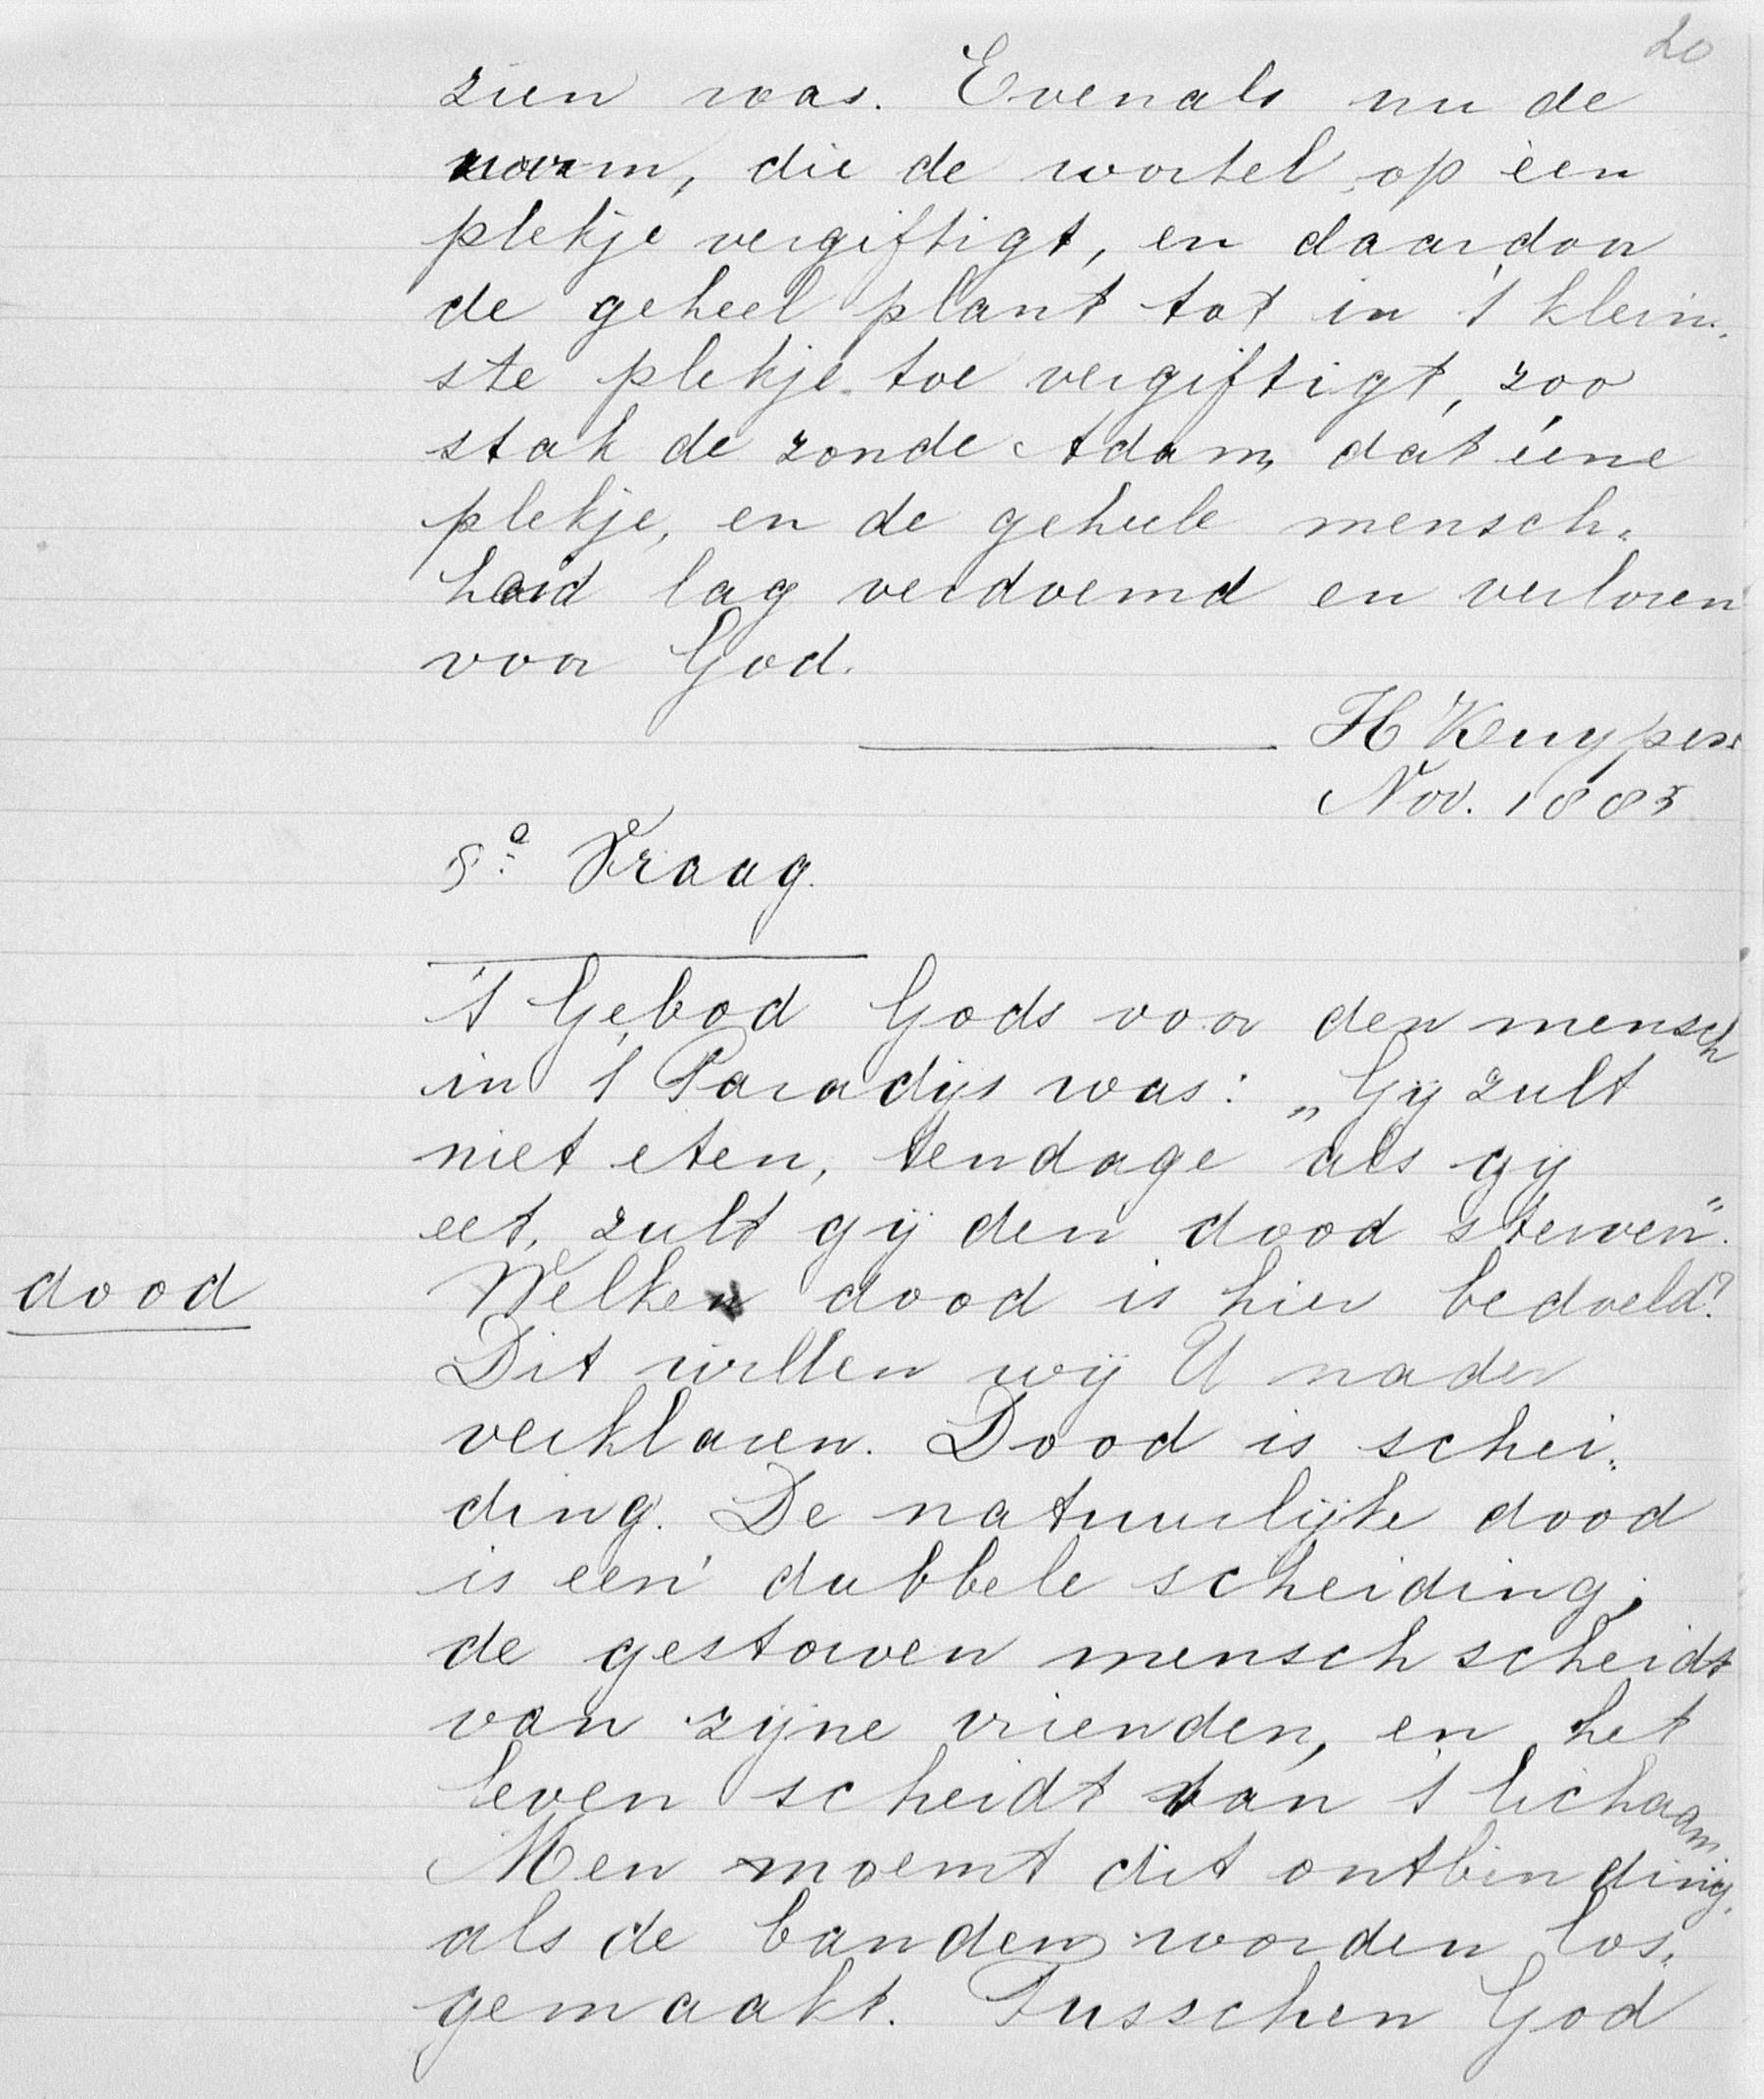 20
zien was. Evenals nu de
worm, die de wortel op één
plekje vergiftigt, en daardoor
de geheel plant tot in 't klein„
ste plekje toe vergiftigt, zoo
stak de zonde Adam, dat ééne
plekje, en de geheele mensch„
heid lag verdoemd en verloren
voor God.
H Kuyper.
Nov. 1885
5e Vraag.
't Gebod Gods voor den mensch
in 't Paradijs was: „Gij zult
niet eten, tendage als gij
eet, zult gij den dood sterven".
dood
Welken dood is hier bedoeld?
Dit willen wij U nader
verklaren. Dood is schei„
ding. De natuurlijke dood
is een dubbele scheiding;
de gestorven mensch scheidt
van zijne vrienden, en het
leven scheidt van 't lichaam.
Men noemt dit ontbinding,
als de banden worden los„
gemaakt. Tusschen God